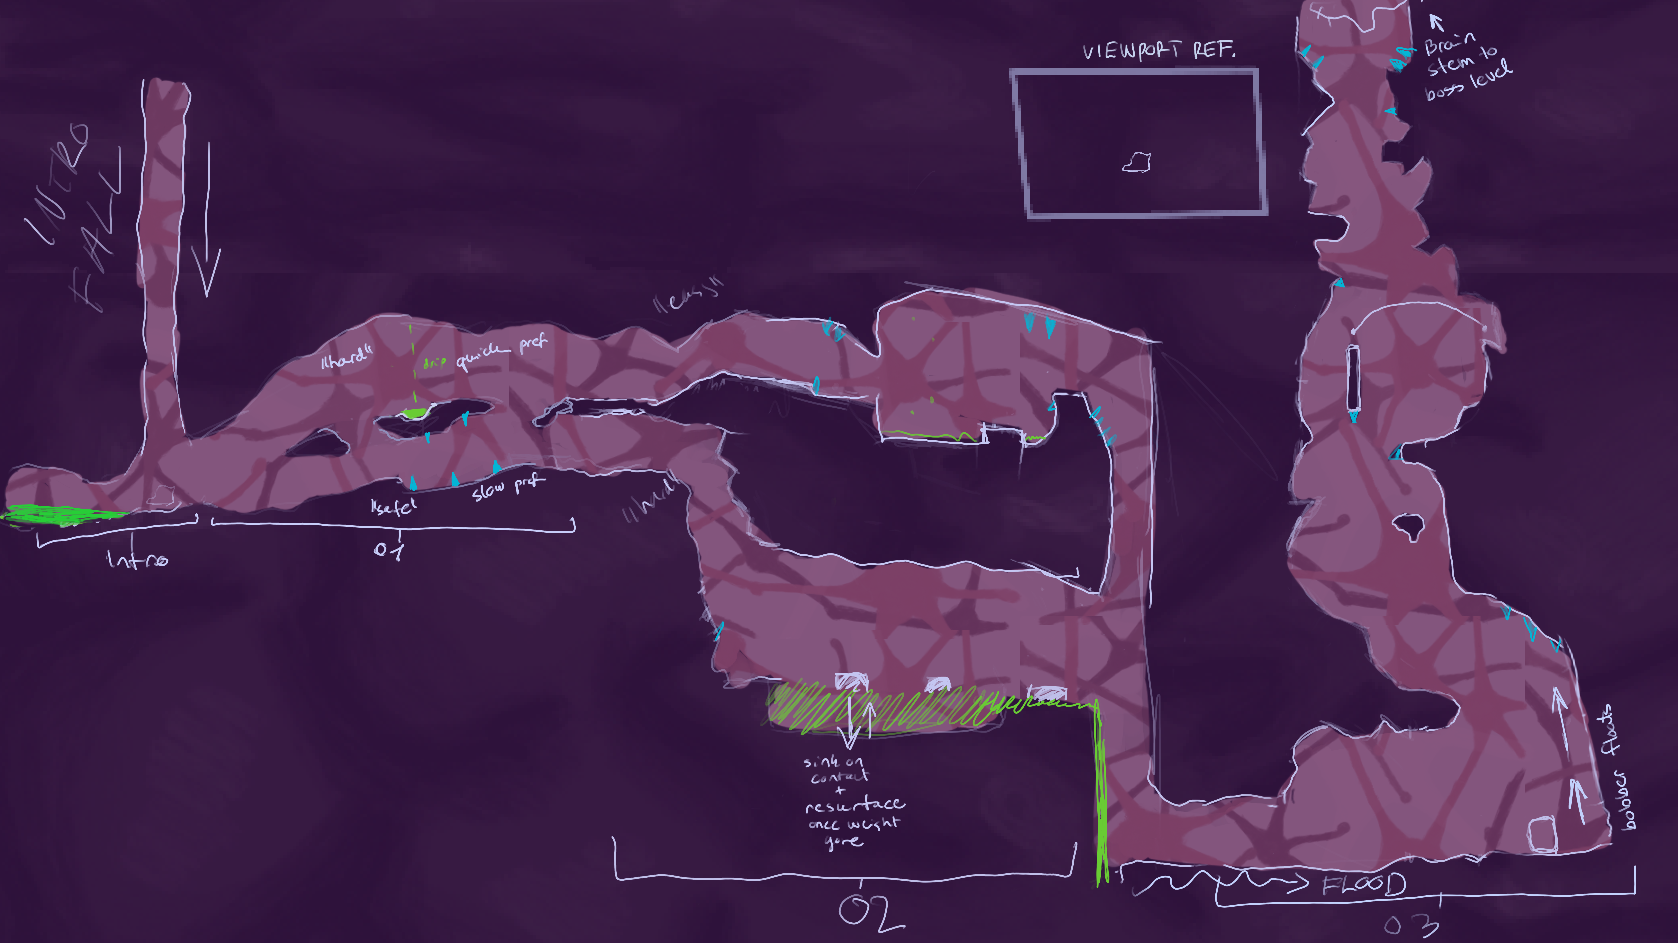 VIEWPORT REF.
Brain
stem to
boss level
INTRO
FALL
"easy"
"hard"
drip
quick pref
slow pref
"safe"
"hard"
Intro
01
sink on
contact
+
resurface
once weight
gone
02
FLOOD
03
bobber floats